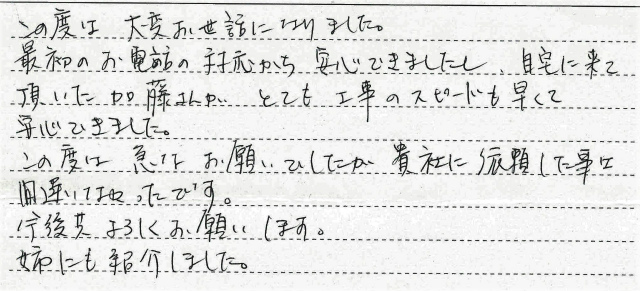 この度は 大変お世話になりました。
最初のお電話の対応から 安心できましたし、自宅に来て
頂いた加藤さんが とても 工事のスピードも早くて
安心できました。
この度は 急な お願いでしたが 貴社に依頼した事は
間違いなかったです。
今後共よろしくお願いします。
姉にも紹介しました。